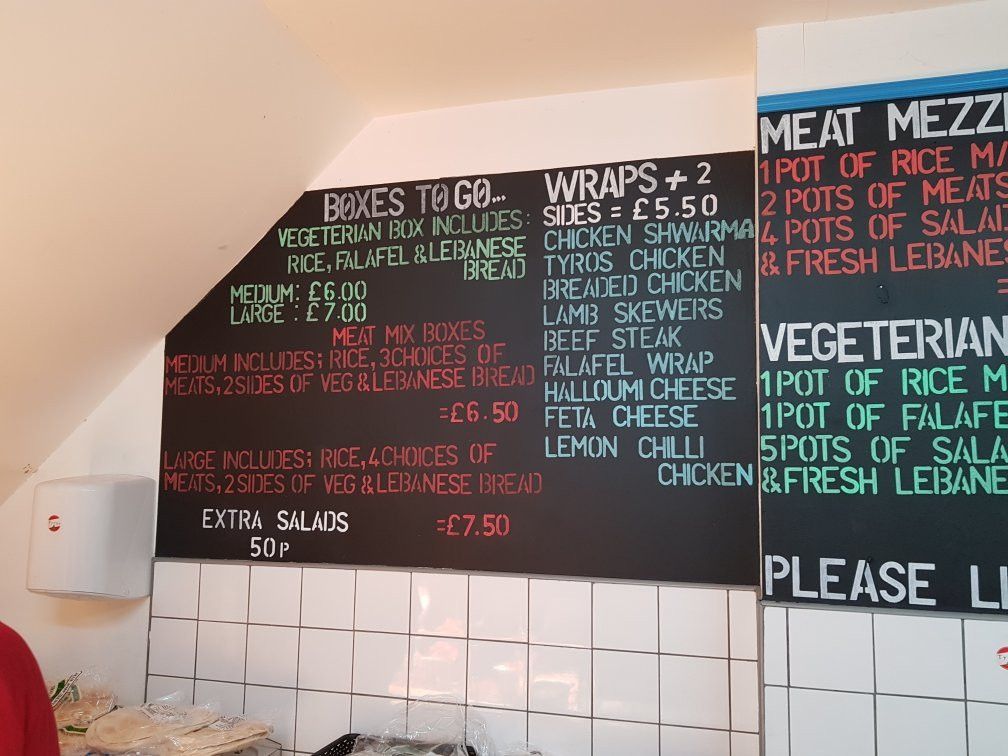 BOXES TO GO...
VEGETERIAN BOX INCLUDES:
RICE, FALAFEL & LEBANESE
BREAD
MEDIUM: £6.00
LARGE : £7.00
MEAT MIX BOXES
MEDIUM INCLUDES; RICE, 3 CHOICES OF
MEATS, 2 SIDES OF VEG & LEBANESE BREAD
=£6.50
LARGE INCLUDES; RICE, 4 CHOICES OF
MEATS, 2 SIDES OF VEG & LEBANESE BREAD
=£7.50
EXTRA SALADS
50P
WRAPS + 2
SIDES = £5.50
CHICKEN SHWARMA
TYROS CHICKEN
BREADED CHICKEN
LAMB SKEWERS
BEEF STEAK
FALAFEL WRAP
HALLOUMI CHEESE
FETA CHEESE
LEMON CHILLI
CHICKEN
MEAT MEZZ
1 POT OF RICE
2 POTS OF MEATS
4 POTS OF SALA
& FRESH LEBANES
=
VEGETERIAN
1 POT OF RICE M
1 POT OF FALAFE
5 POTS OF SALA
& FRESH LEBANE
PLEASE